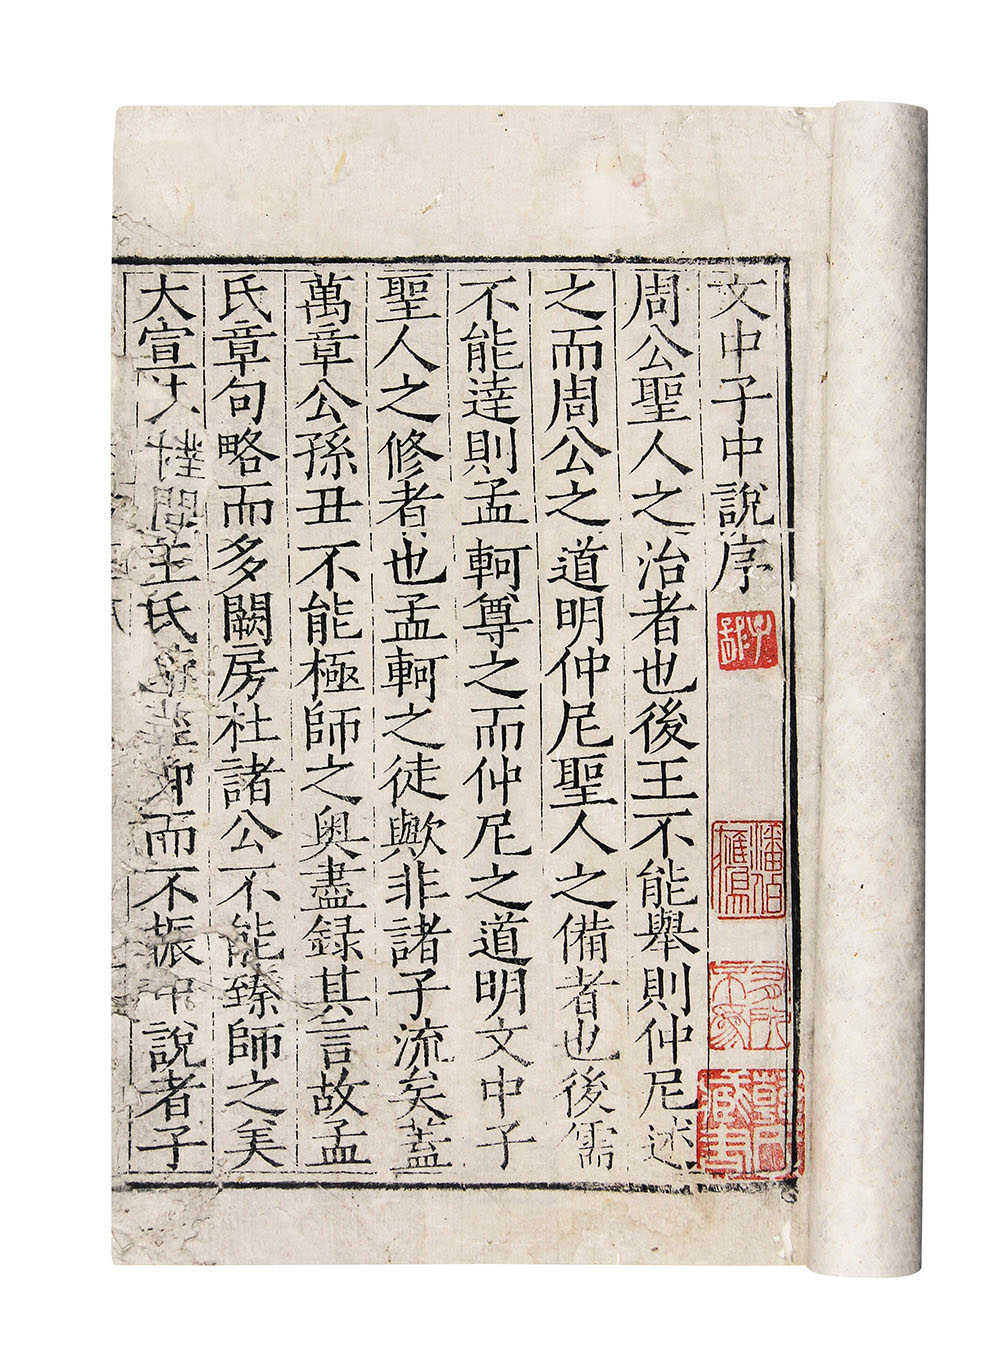 文中子中說序
周公聖人之治者也後王不能舉則仲尼述
之而周公之道明仲尼聖人之備者也後儒
不能達則孟軻尊之而仲尼之道明文中子
聖人之修者也孟軻之徒歟非諸子流矣蓋
萬章公孫丑不能極師之奧盡録其言故孟
氏章句略而多闕房杜諸公不能臻師之美
大宣王氏抑而不振中說者子
潘伯鷹